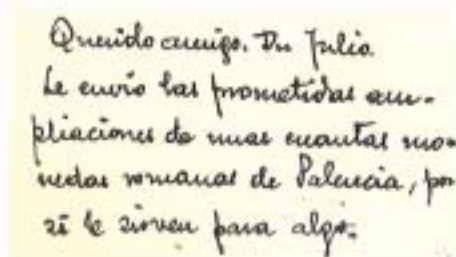 Querido amigo. Dn Julio
Le envío las prometidas am-
pliaciones de unas cuantas mo-
nedas romanas de Palencia, por
si le sirven para algo.